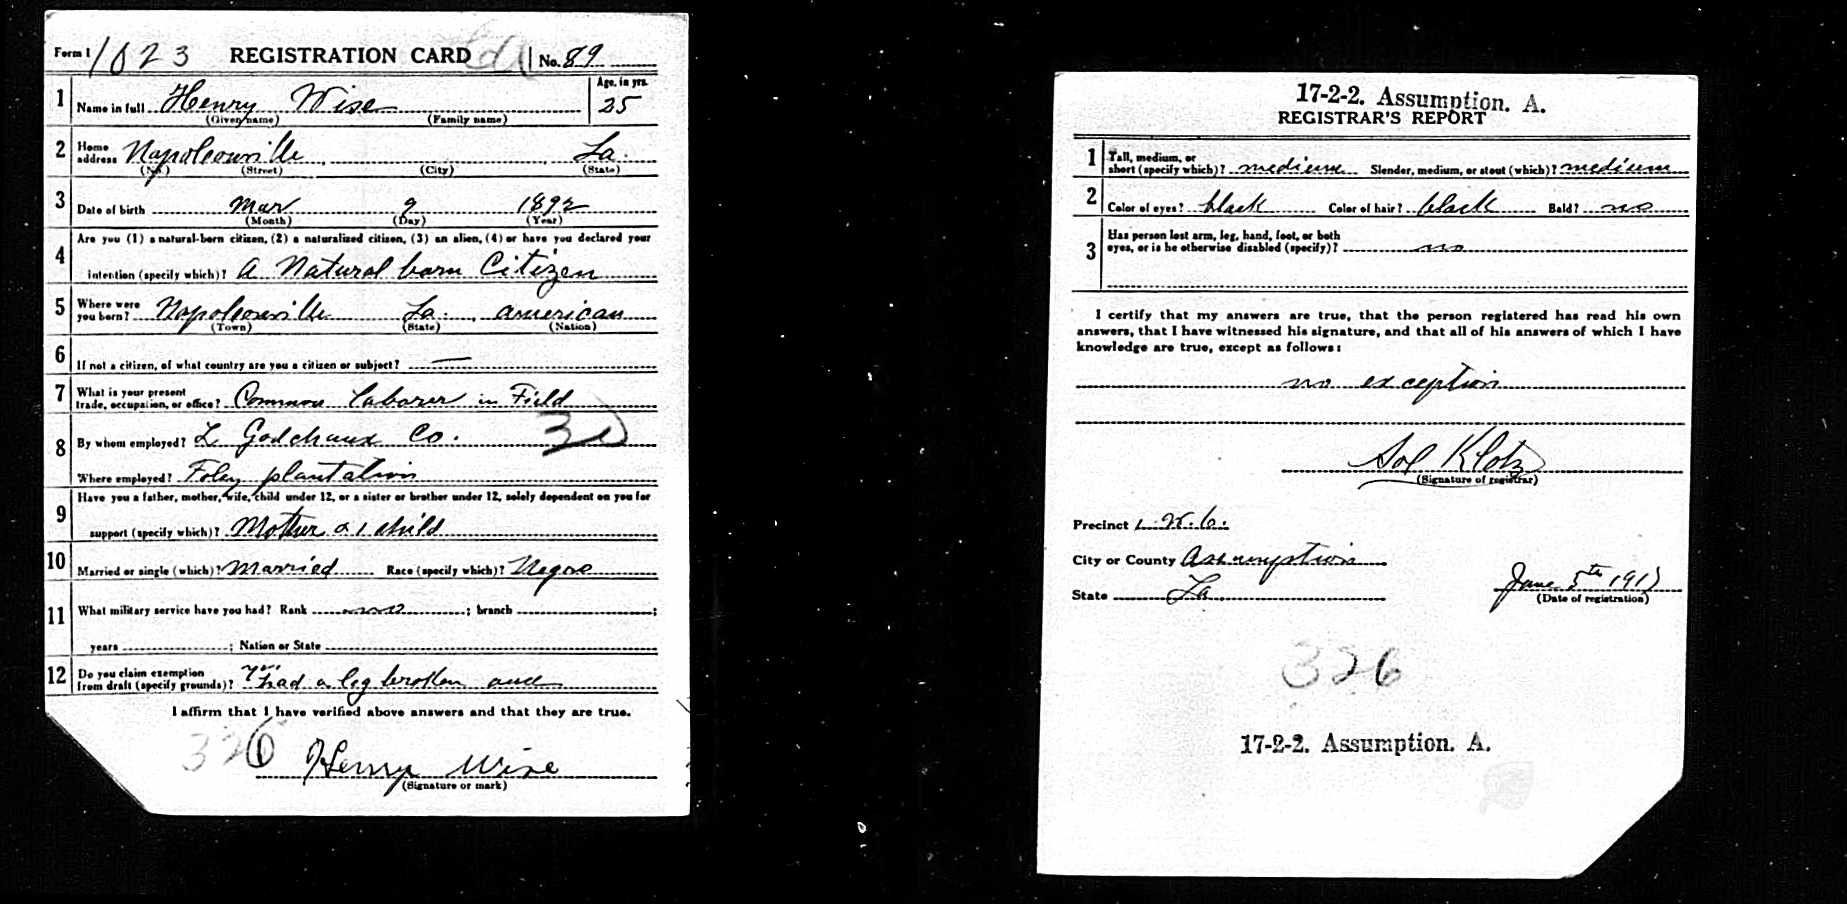 Form 1 1023 REGISTRATION CARD No. 89
1 Name in full Henry Wise Age, in yrs. 25
(Given name) (Family name)
2 Home address Napoleonville, La.
(No.) (Street) (City) (State)
3 Date of birth Mar 9 1892
(Month) (Day) (Year)
4 Are you (1) a natural-born citizen, (2) a naturalized citizen, (3) an alien, (4) or have you declared your
intention (specify which)? A Natural born Citizen
5 Where were you born? Napoleonville La. American
(Town) (State) (Nation)
6 If not a citizen, of what country are you a citizen or subject? —
7 What is your present trade, occupation, or office? Common laborer in Field
8 By whom employed? L Godchaux Co. 30
Where employed? Foley plantation
9 Have you a father, mother, wife, child under 12, or a sister or brother under 12, solely dependent on you for
support (specify which)? Mother & 1 child
10 Married or single (which)? Married Race (specify which)? Negro
11 What military service have you had? Rank no ; branch ;
years ; Nation or State
12 Do you claim exemption from draft (specify grounds)? Yes had a leg broken
I affirm that I have verified above answers and that they are true.
326 Henry Wise
(Signature or mark)
17-2-2. Assumption. A.
REGISTRAR'S REPORT
1 Tall, medium, or short (specify which)? medium Slender, medium, or stout (which)? medium
2 Color of eyes? black Color of hair? black Bald? no
3 Has person lost arm, leg, hand, foot, or both eyes, or is he otherwise disabled (specify)? no
I certify that my answers are true, that the person registered has read his own
answers, that I have witnessed his signature, and that all of his answers of which I have
knowledge are true, except as follows:
no exception
Sol Klotz
(Signature of registrar)
Precinct
City or County Assumption
State La. June 5th 1917
(Date of registration)
326
17-2-2. Assumption. A.